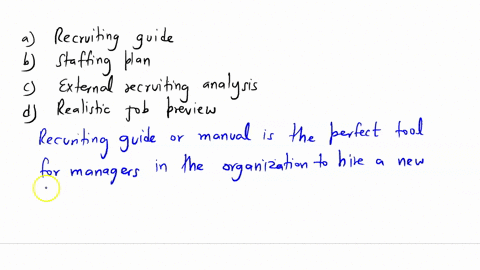 a) Recruiting guide
b) Staffing plan
c) External recruiting analysis
d) Realistic job preview
Recruiting guide or manual is the perfect tool
for managers in the organization to hire a new